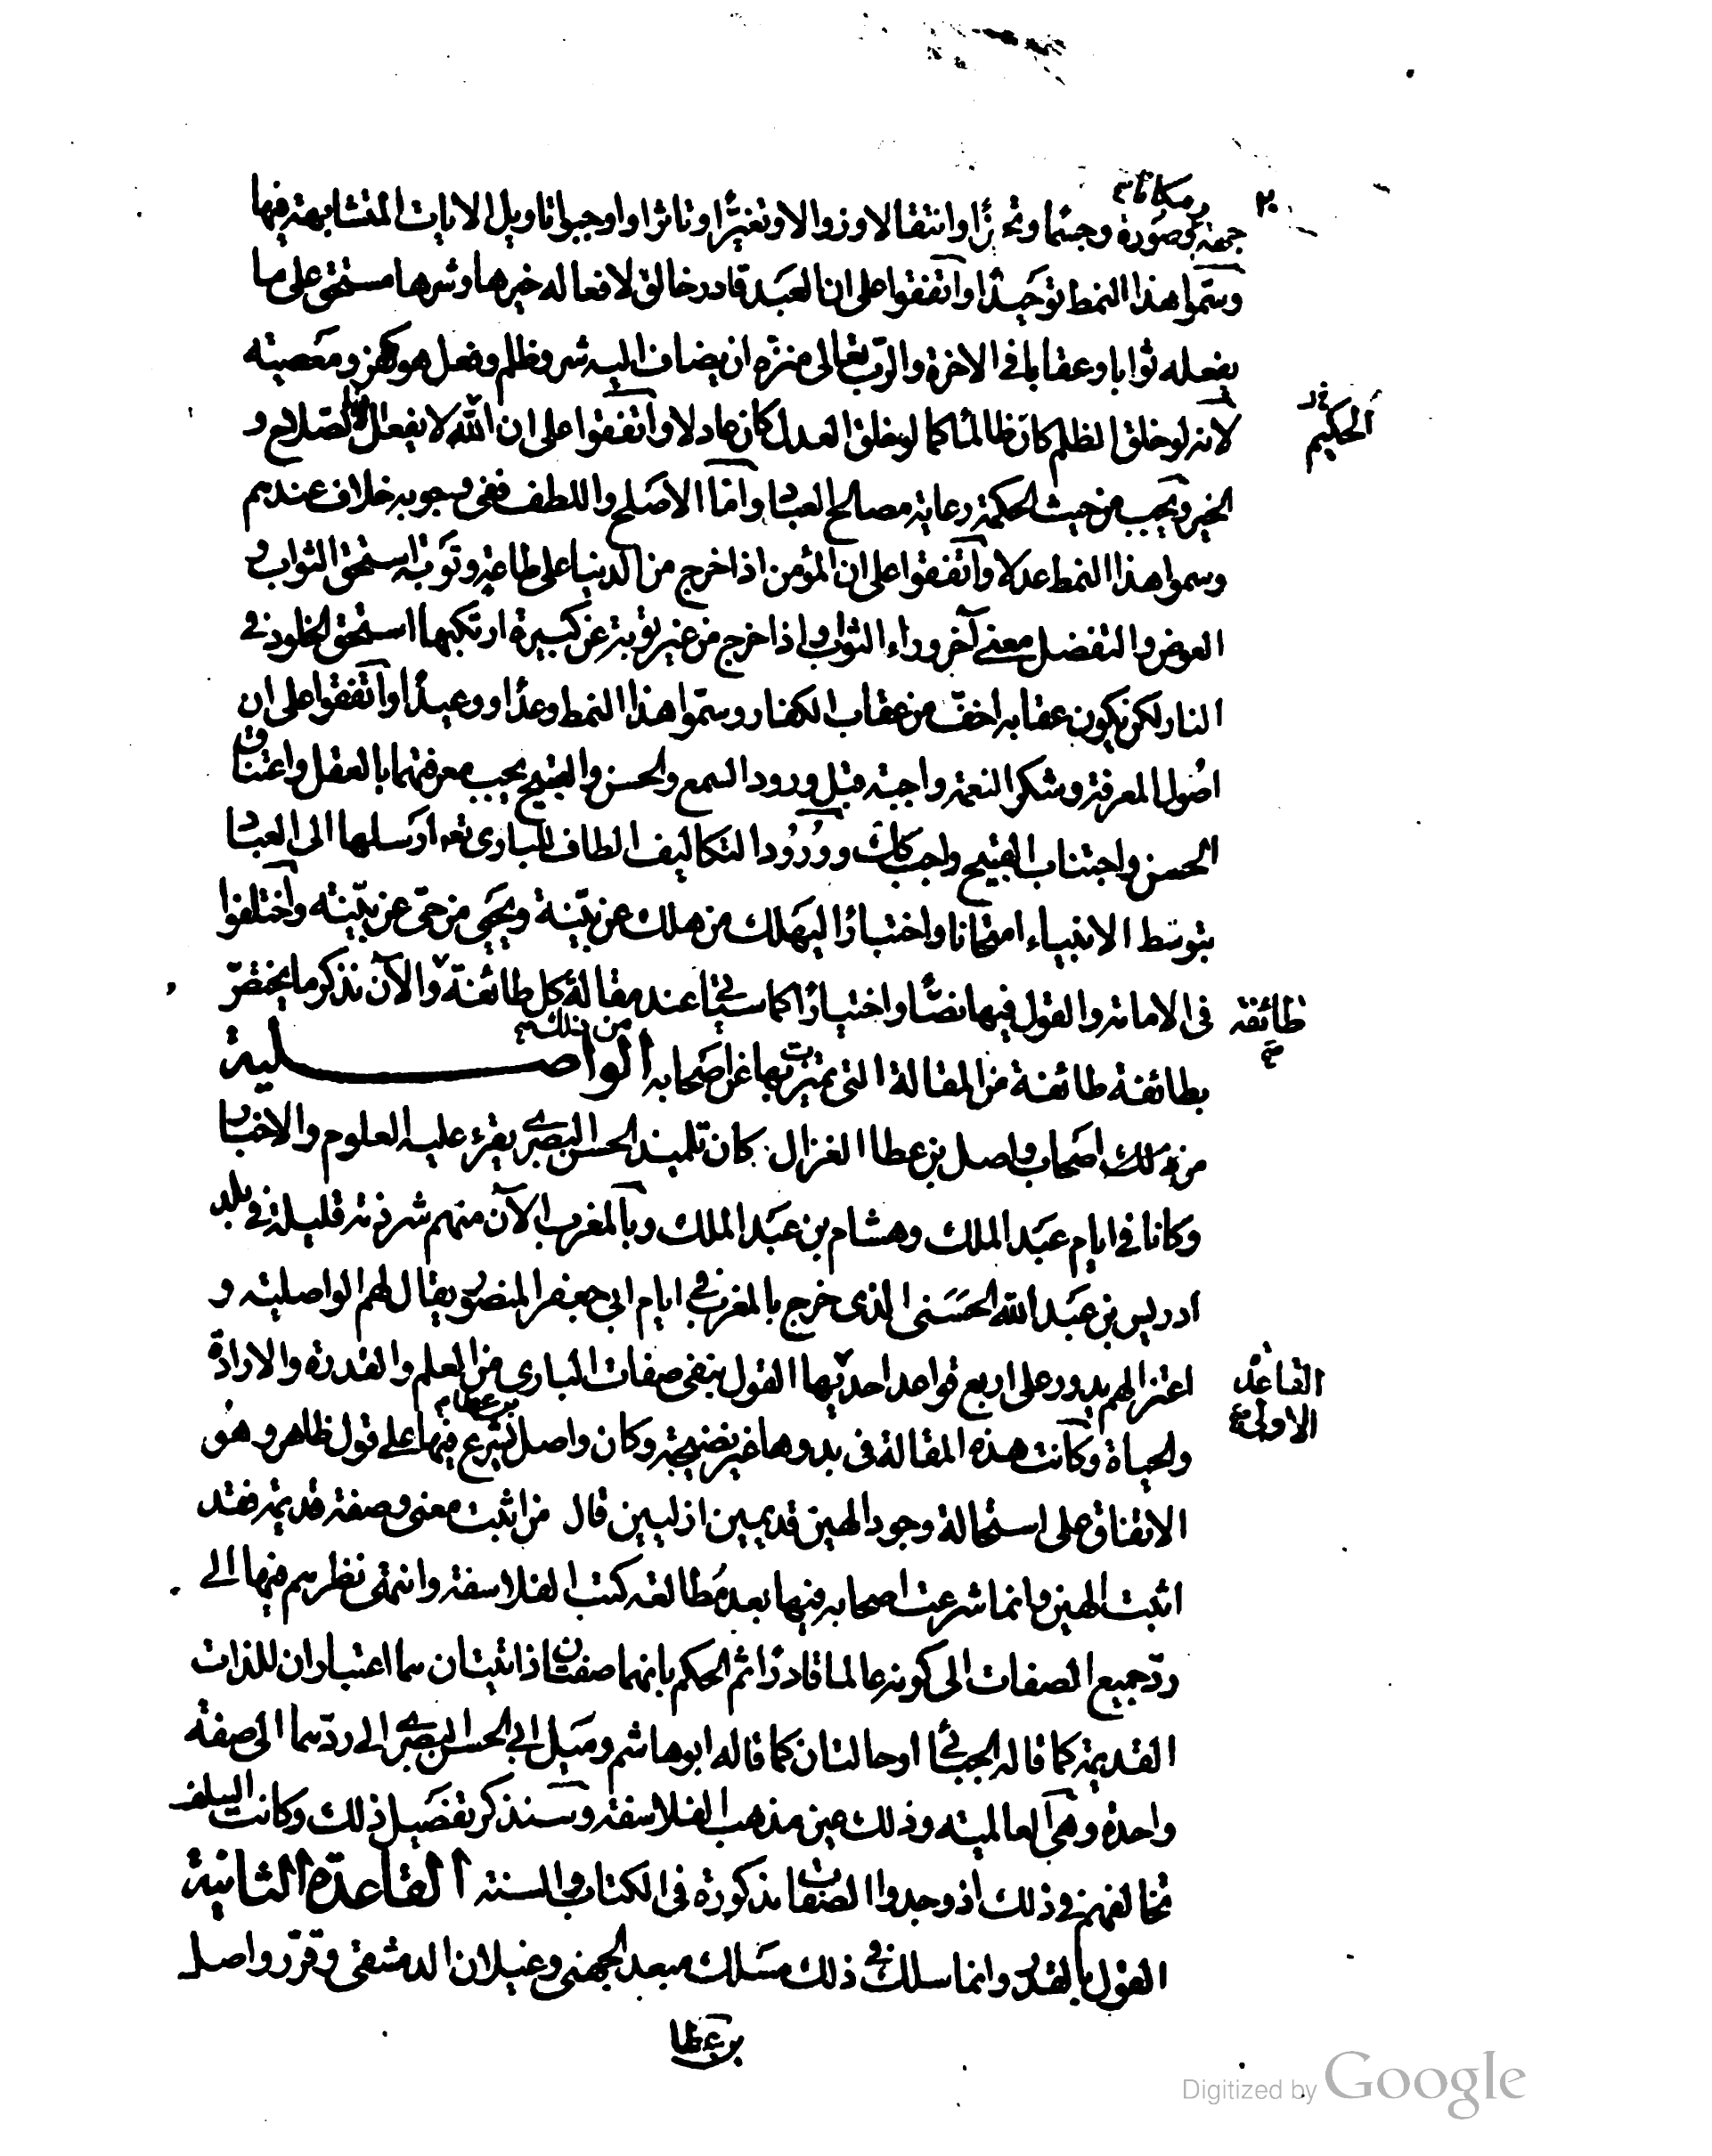 ٢٠
ومكانا
جهة وصورة وجسما وتحيزا وانتقالا وزوالا وتغيرا وتاثرا واوجبوا تاويل الايات المتشابهة فيها
وسموا هذا النمط توحيدا واتفقوا على ان العبد قادر خالق لافعاله خيرها وشرها مستحق على ما
يفعله ثوابا وعقابا فى الاخرة والرب تعالى منزه ان يضاف اليه شر وظلم وفعل هو كفر ومعصيته
الحكيم
لانه لو خلق الظلم كان ظالما كما لو خلق العدل كان عادلا واتفقوا على ان الله لا يفعل الا الصلاح و
الخير ويجب من حيث الحكمة رعاية مصالح العباد واما الاصلح واللطف ففى وجوبه خلاف عندهم
وسموا هذا النمط عدلا واتفقوا على ان المؤمن اذا خرج من الدنيا على طاعة وتوبة استحق الثواب و
العوض والتفضل معنى آخر وراء الثواب واذا خرج من غير توبة عن كبيرة ارتكبها استحق الخلود فى
النار لكن يكون عقابه اخف من عقاب الكفار وسموا هذا النمط وعدا ووعيدا واتفقوا على ان
اصول المعرفة وشكر النعمة واجبة قبل ورود السمع والحسن والقبيح يجب معرفتهما بالعقل واعتناق
الحسن واجتناب القبيح واجب كذلك وورود التكاليف الطاف للبارى تعه ارسلها الى العباد
بتوسط الانبياء امتحانا واختبارا ليهلك من هلك عن بينة ويحيى من حى عن بينة واختلفوا
فى الامامة والقول فيها نصا واختيارا كما سيأتى عند مقالة كل طائفة والآن نذكر ما يختص
طائفة
بطائفة طائفة من المقالة التى تميزت بها عن اصحابه الواصلية
من ذلك
من ذلك اصحاب واصل بن عطا الغزال كان تلميذ الحسن البصرى يقرء عليه العلوم والاخبار
وكانا فى ايام عبد الملك وهشام بن عبد الملك وبالمغرب الآن منهم شرذمة قليلة فى بلد
ادريس بن عبد الله الحسنى الذى خرج بالمغرب فى ايام ابى جعفر المنصور يقال لهم الواصلية و
اعتزالهم يدور على اربع قواعد احديها القول بنفى صفات البارى من العلم والقدرة والارادة
القاعدة
الاولى
والحياة وكانت هذه المقالة فى بدوها غير نضيجة وكان واصل يشرع فيها على قول ظاهر وهو
بن عطا
الاتفاق على استحالة وجود الهين قديمين ازليين قال من اثبت معنى وصفة قديمة فقد
اثبت الهين وانما شرعت اصحابه فيها بعد مطالعة كتب الفلاسفة وانتهى نظرهم فيها الى
رد جميع الصفات الى كونه عالما قادرا ثم الحكم بانهما صفتان ذاتيتان هما اعتباران للذات
القديمة كما قاله الجبائى او حالتان كما قاله ابوهاشم وميل ابى الحسن البصرى الى ردهما الى صفة
واحدة وهى العالمية وذلك عين مذهب الفلاسفة وسنذكر تفصيل ذلك وكانت السلف
تخالفهم فى ذلك اذ وجدوا الصفات مذكورة فى الكتاب والسنة القاعدة الثانية
القول بالقدر وانما سلك فى ذلك مسلك معبد الجهنى وغيلان الدمشقى وقرر واصل
بن عطا
Digitized by Google